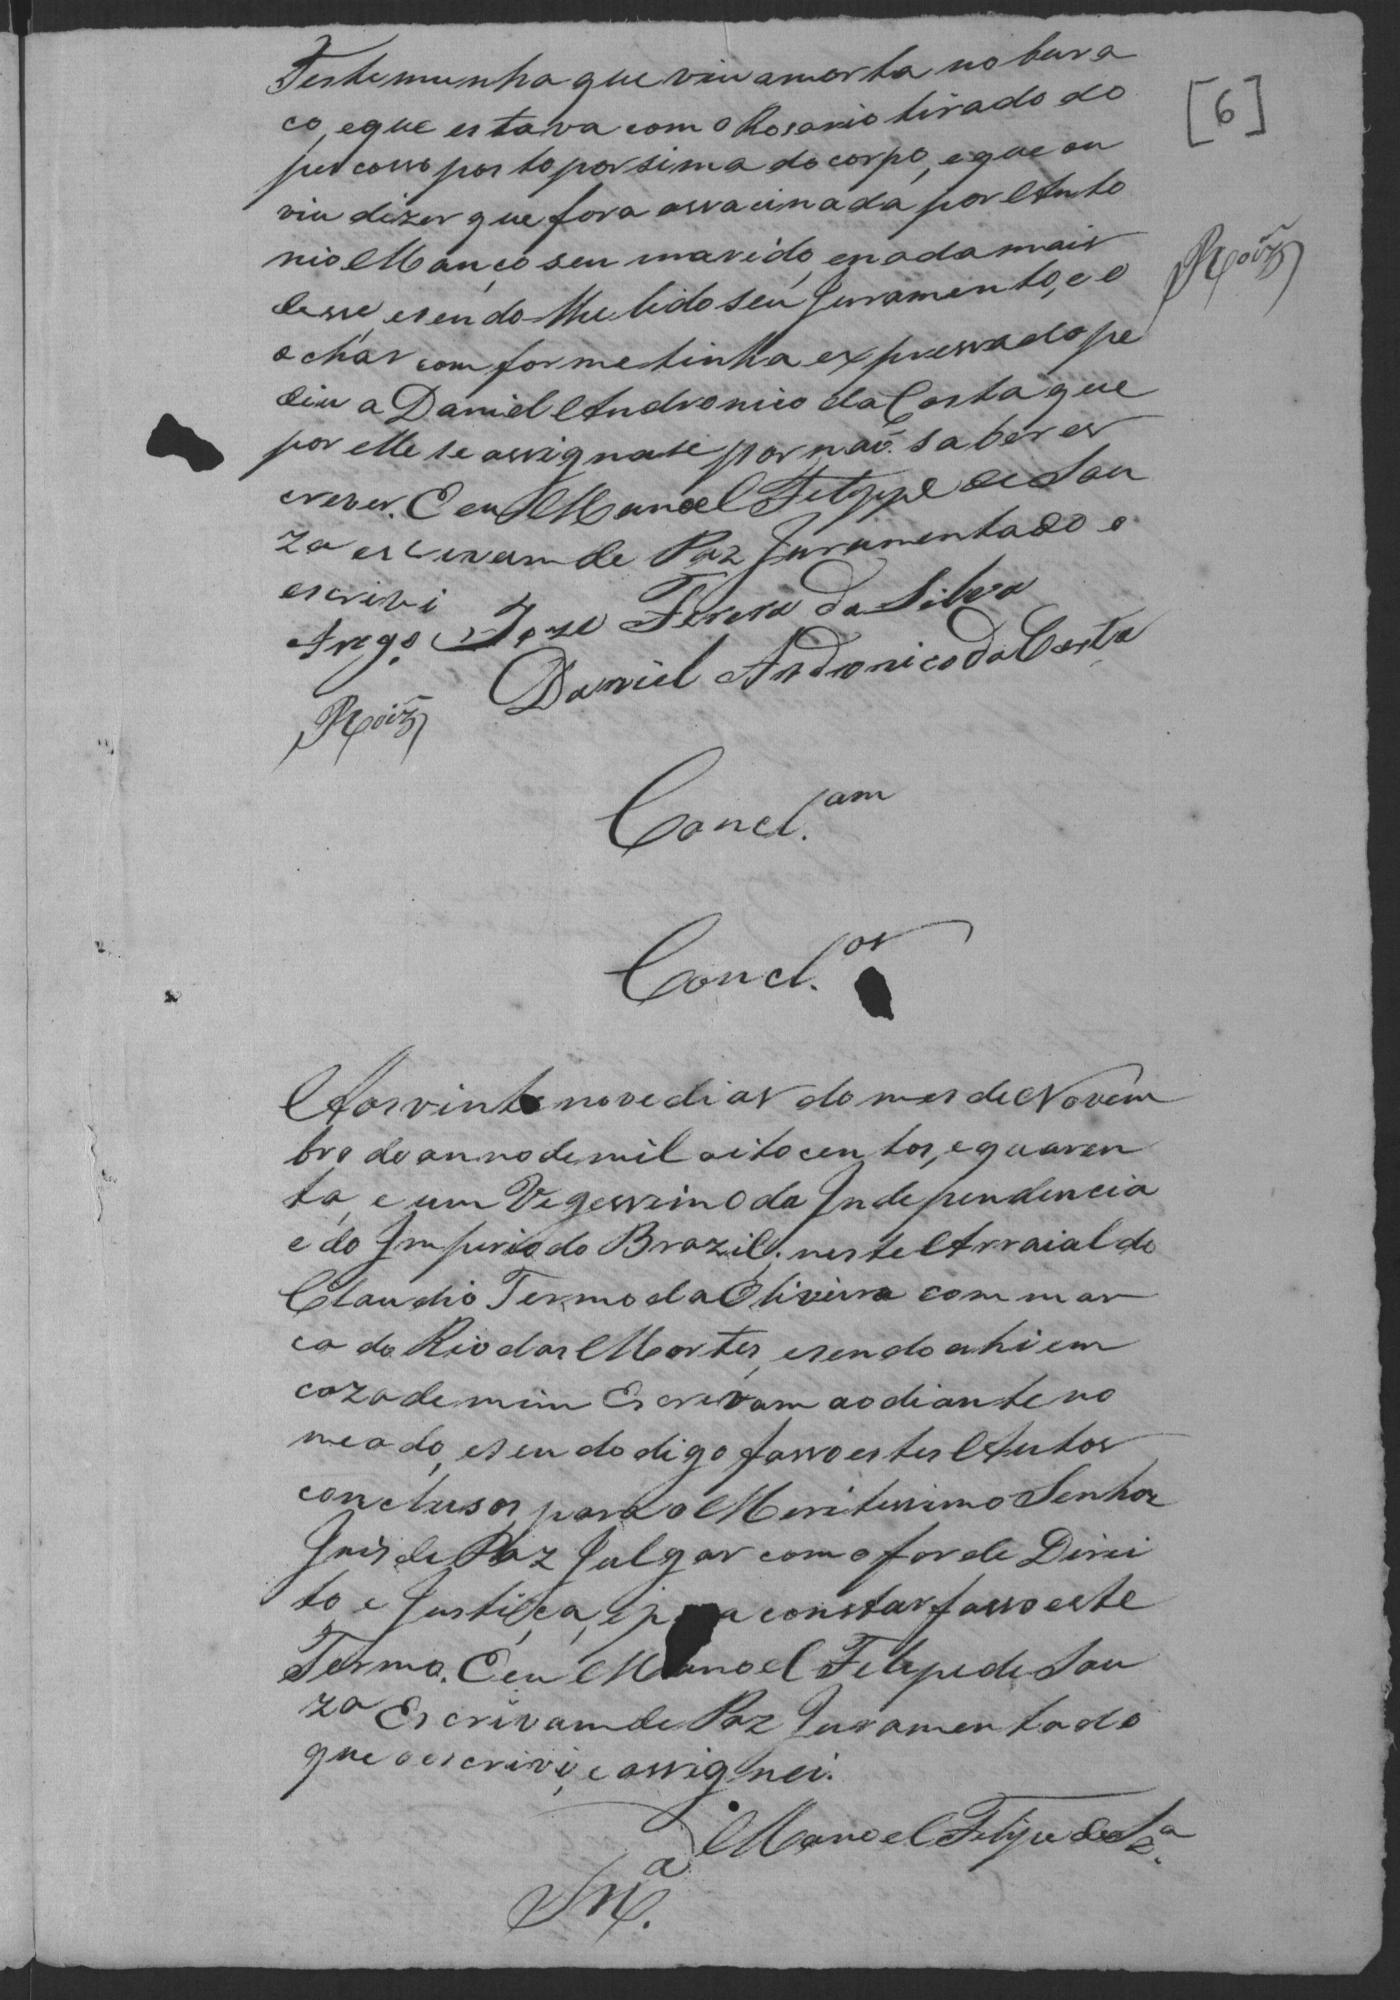 Testemunha que viu a morta no bura
co, e que estava com o Rosario tirado do
pescosso posto por sima do corpo, e que ou
viu dizer que fora assacinada por Anto
nio Manço seu marido, e nada mais
disse, e sendo lhe lido seu Juramento, e o
achar comforme tinha expressado pe
diu a Daniel Andronico da Costa que
por elle se assignase por naõ saber es
crever. E eu Manoel Felippe de Sou
za escrivam de Paz Juramentado o
escrivi
Joze Ferera da Silva
Arogo
Daniel Andronico da Costa
Roiz
[6]
Roiz
Concl.am
Concl.os
Aos vinte nove dias do mes de Novem
bro do anno de mil oito centos, e quaren
ta, e um Vegessimo da Independencia
e do Imperio do Brazil; neste Arraial do
Claudio Termo da Oliveira commar
ca do Rio das Mortes, e sendo ahi em
caza de mim Escrivam ao diante no
meado, e sendo digo fasso estes Autos
conclusos para o Meritissimo Senhor
Juis de Paz Julgar como for de Direi
to e Justiça, e para constar fasso este
Termo. E eu Manoel Felipe de Sou
za Escrivam de Paz Juramentado
que o escrivi, e assignei.
Manoel Felipe de Sz.a